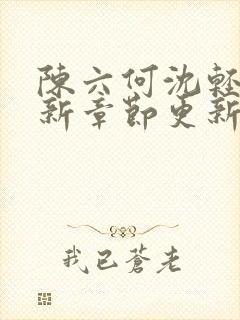 陳六何沈輕
新章節更新
我已蒼老